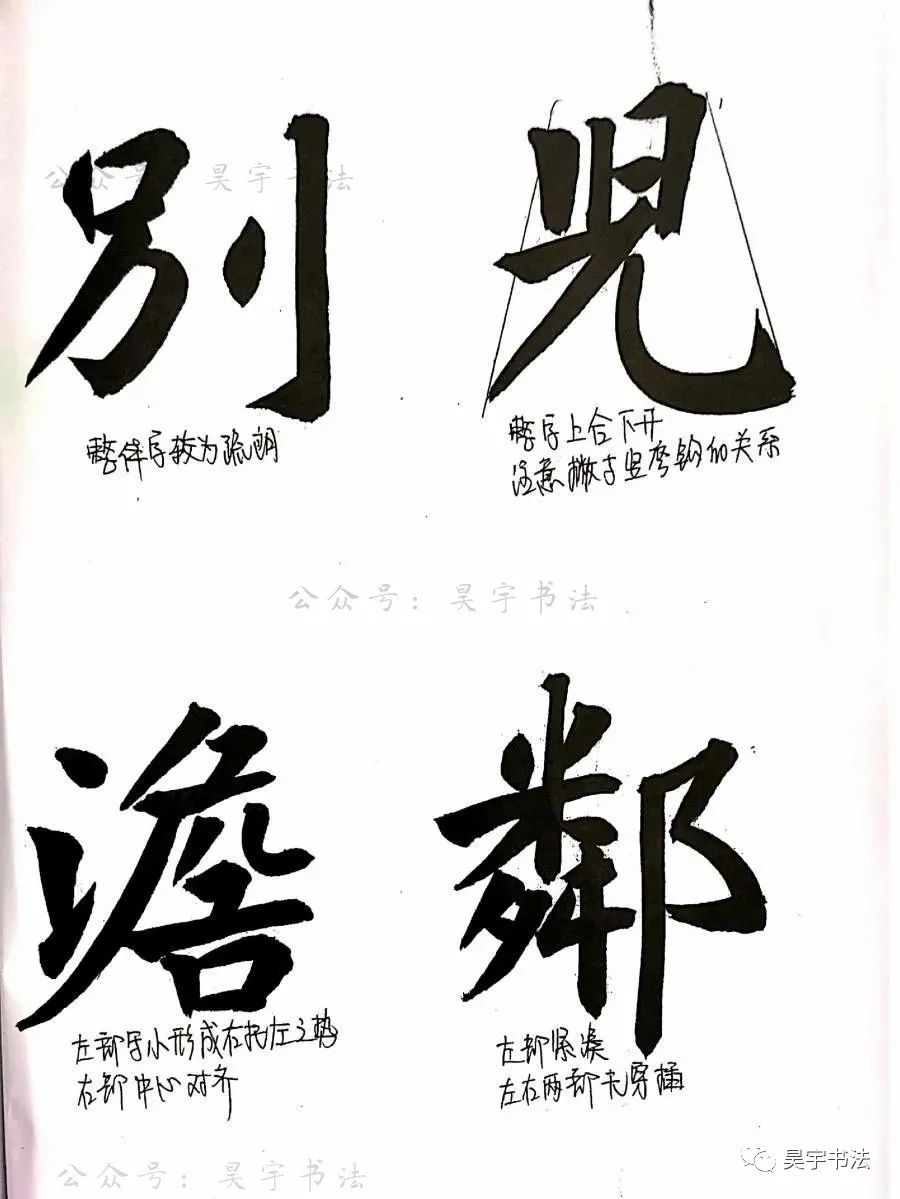 别 兒
公众号：昊宇书法
整体字较为疏朗
整字上合下开
注意撇与竖弯钩的关系
公众号：昊宇书法
澹 鄰
左部写小形成右托左之势
右部中心对齐
左部紧凑
左右两部大穿插
公众号：昊宇书法
昊宇书法